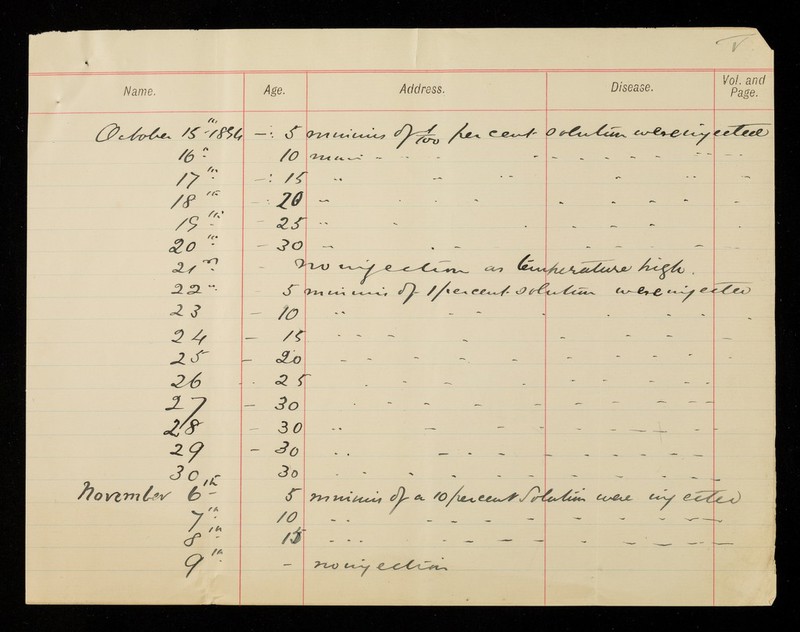 V
Name. Age. Address. Disease. Vol. and Page.
October 15th 1894 — : 5 minims of 1/100 per cent solution were injected
16th 10 min - - - - - - - -
17th — : 15 " - " - " -
18th - : 20 " - - - - - - -
19th - 25 " - - - - -
20th - 30 - - - - - - -
21st - no injection as temperature high.
22nd 5 minims of 1 per cent. solution were injected
23 - 10 " - - - - - -
24 - 15 - - - - - - - -
25 - 20 - - - - - - - - -
26 - 25 - - - - - - -
27 - 30 - - - - - - - -
28 - 30 " - - - - - -
29 - 30 - - - - - - - - -
30 30 - - - - - - - -
November 6th - 5 minims of a 10 per cent Solution were injected
7th 10 - - - - - - - - -
8th 15 - - - - - - - - -
9th - no injection